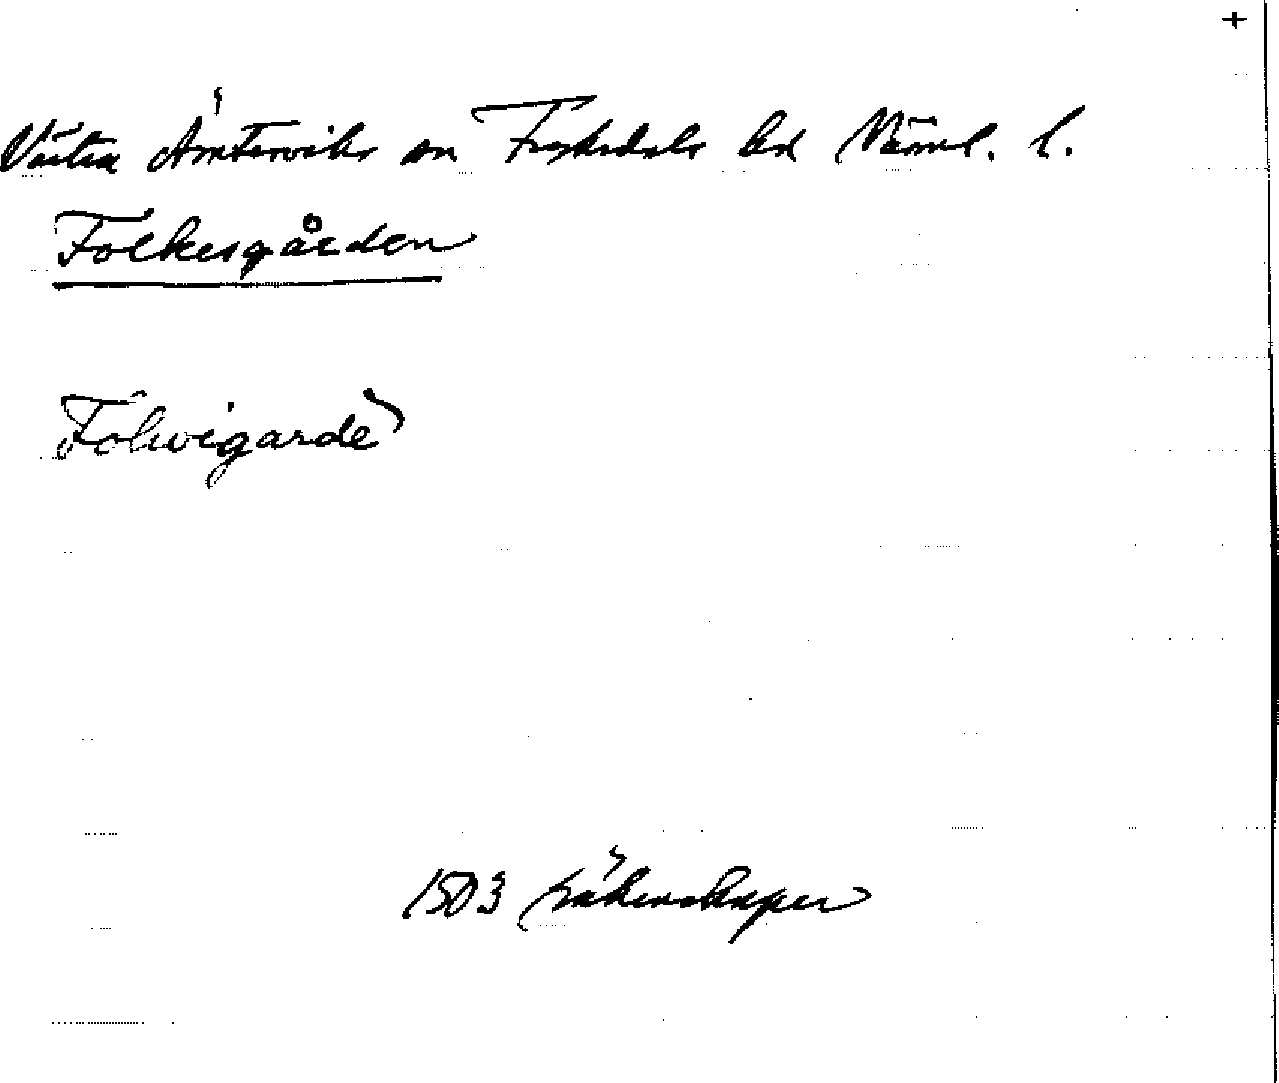 +
Västra Ämterviks sn Fryksdals hd Värml. l.
Folkesgården
Folwigarde
1503 räkenskaper